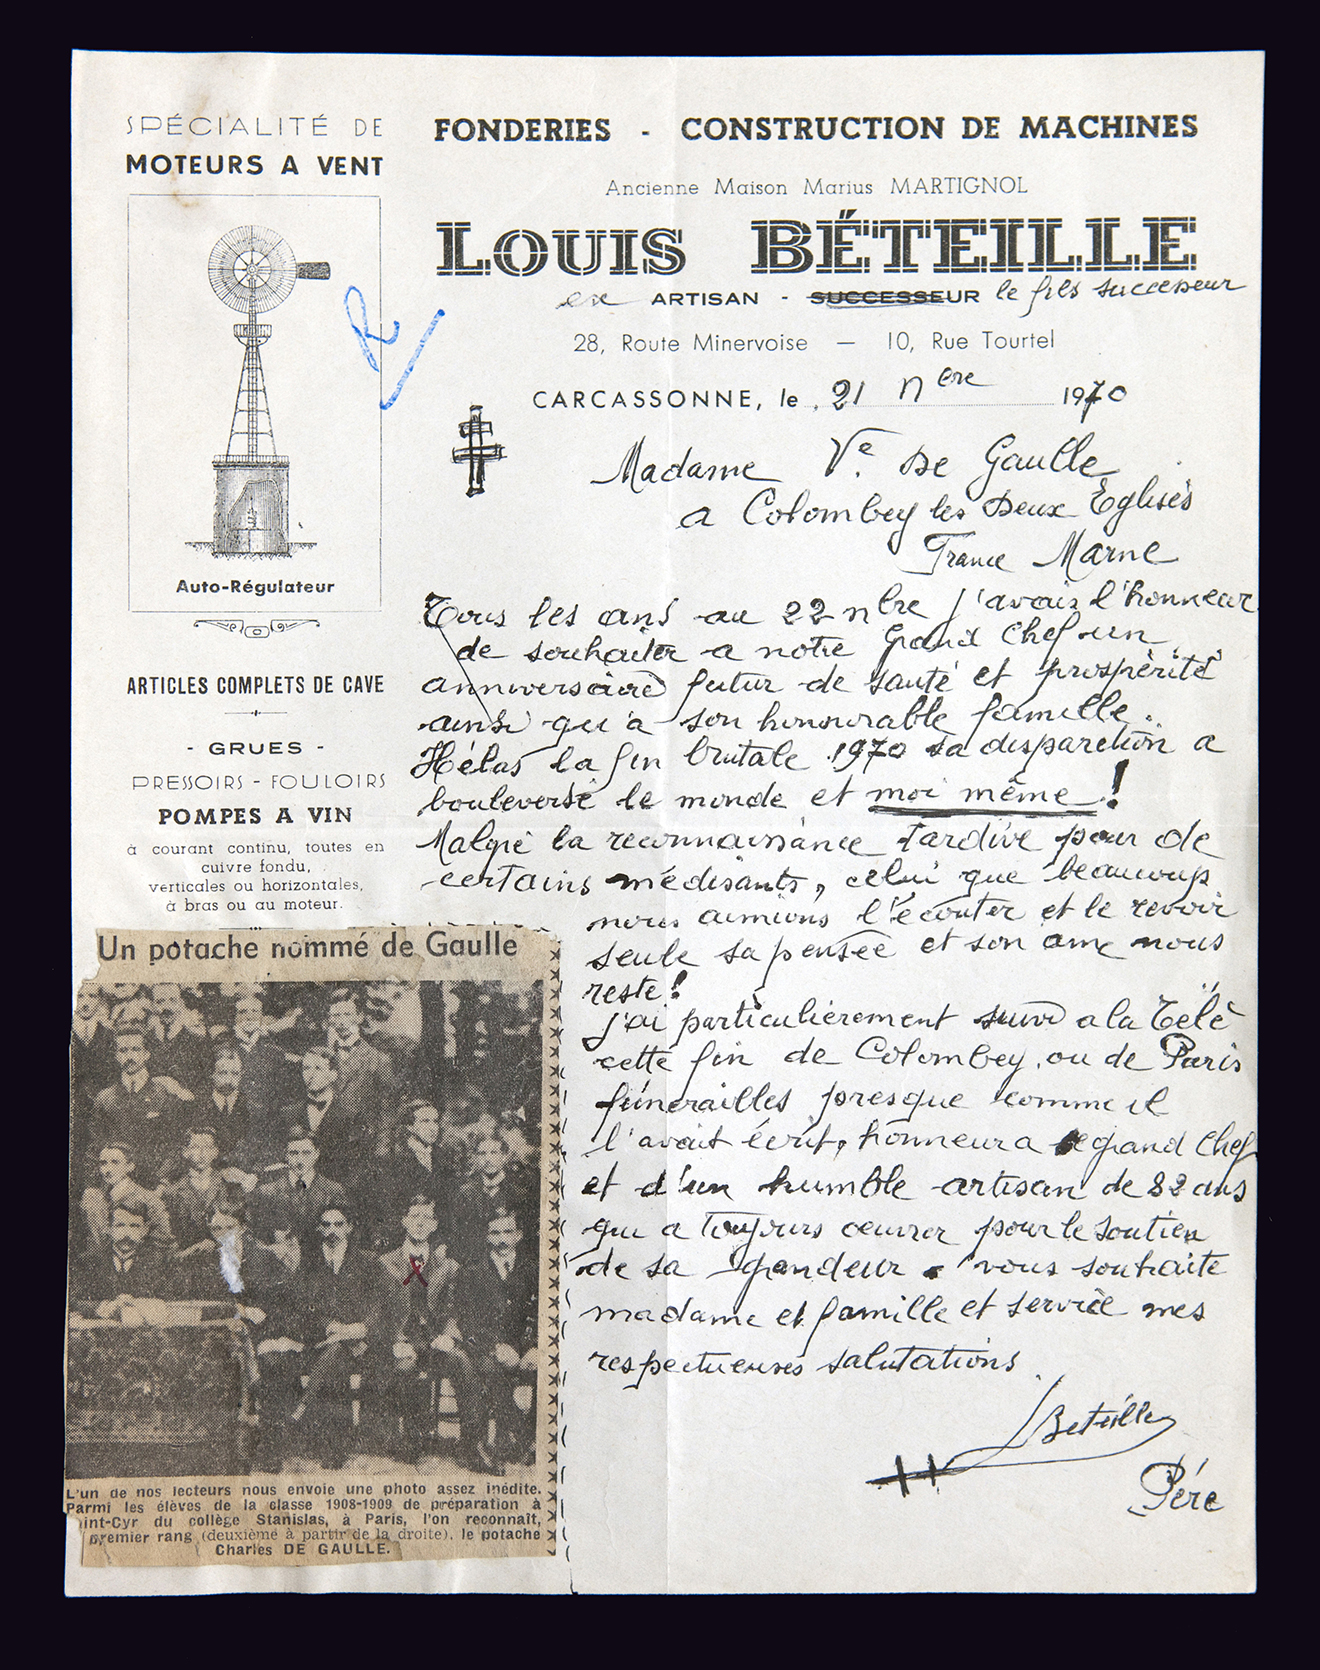 SPÉCIALITÉ DE
MOTEURS A VENT
Auto-Régulateur
ARTICLES COMPLETS DE CAVE
- GRUES -
PRESSOIRS - FOULOIRS
POMPES A VIN
à courant continu, toutes en
cuivre fondu,
verticales ou horizontales,
à bras ou au moteur.
FONDERIES - CONSTRUCTION DE MACHINES
Ancienne Maison Marius MARTIGNOL
LOUIS BÉTEILLE
ex ARTISAN - SUCCESSEUR le fils successeur
28, Route Minervoise — 10, Rue Tourtel
CARCASSONNE, le 21 nbre 1970
Madame Ve. De Gaulle
a Colombey les Deux Églises
France Marne
Tous les ans au 22 nbre j'avais l'honneur
de souhaiter a notre Grand Chef un
anniversaire futur de santé et prospèrité
ainsi qu'a son honnorable famille.
Hélas la fin brutale 1970 sa disparition a
bouleversé le monde et moi même !
Malgré la reconnaissance tardive pour de
certains médisants, celui que beaucoup
nous aimions l'écouter et le revoir
seule sa pensée et son ame nous
reste !
j'ai particulièrement suivi a la Télé
cette fin de Colombey ou de Paris
funérailles presque comme il
l'avait écrit, honneur a le grand Chef
et d'un humble artisan de 82 ans
qui a toujours oeuvrer pour le soutien
de sa grandeur. vous souhaite
madame et famille et service mes
respectueuses salutations
Beteille
Père
Un potache nommé de Gaulle
L'un de nos lecteurs nous envoie une photo assez inédite.
Parmi les élèves de la classe 1908-1909 de préparation à
int-Cyr du collège Stanislas, à Paris, l'on reconnaît,
premier rang (deuxième à partir de la droite), le potache
Charles DE GAULLE.